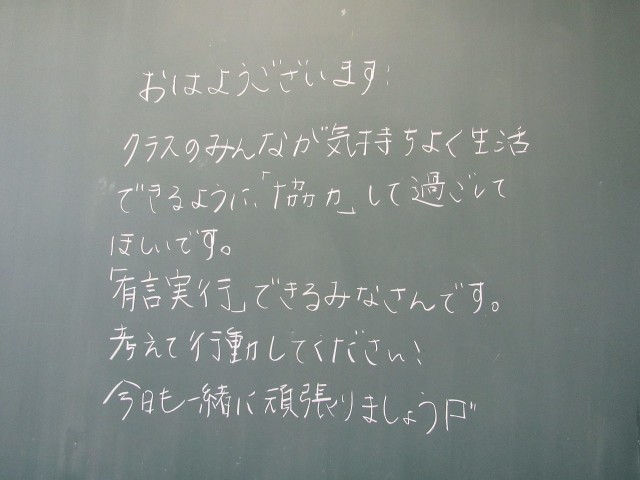 おはようございます!
クラスのみんなが気持ちよく生活
できるように、「協力」して過ごして
ほしいです。
「有言実行」できるみなさんです。
考えて行動してください!
今日も一緒に頑張りましょう